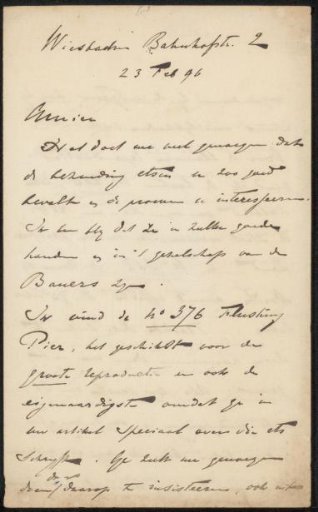 Wiesbaden Bahnhofstr. 2
23 Feb 96
Amice
Het doet me veel genoegen dat
de bezending etsen u zoo goed
bevalt en de proeven u interesseren.
Ik ben blij dat ze in zulke goede
handen en in 't gezelschap van de
Bauers zijn.
Ik vind de No 376 Flushing
Pier, het geschikst voor de
groote reproductie en ook de
eigenaardigste omdat ge in
uw artikel speciaal over die ets
schrijft. Ge zult me genoegen
doen daarop te insisteeren, ook